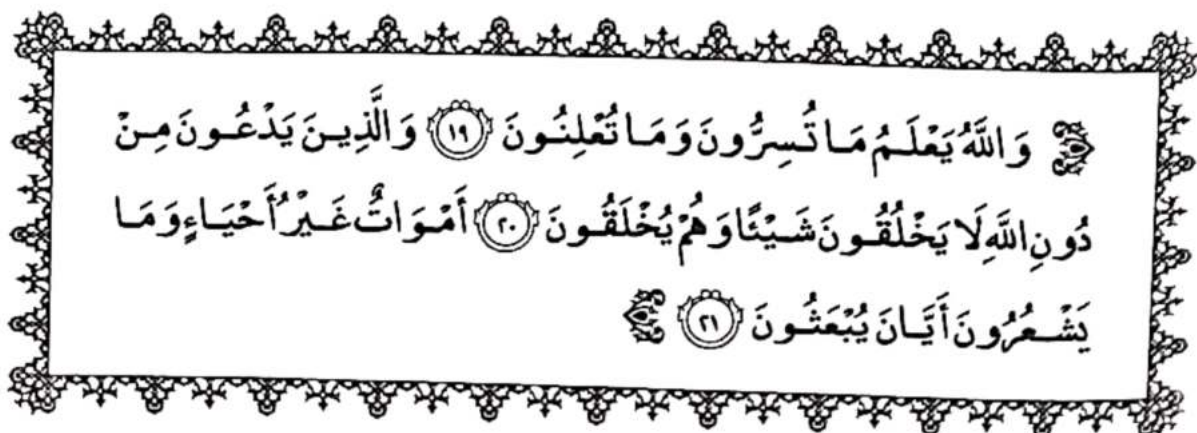 وَاللَّهُ يَعْلَمُ مَا تُسِرُّونَ وَمَا تُعْلِنُونَ ١٩ وَالَّذِينَ يَدْعُونَ مِنْ
دُونِ اللَّهِ لَا يَخْلُقُونَ شَيْئًا وَهُمْ يُخْلَقُونَ ٢٠ أَمْوَاتٌ غَيْرُ أَحْيَاءٍ وَمَا
يَشْعُرُونَ أَيَّانَ يُبْعَثُونَ ٢١